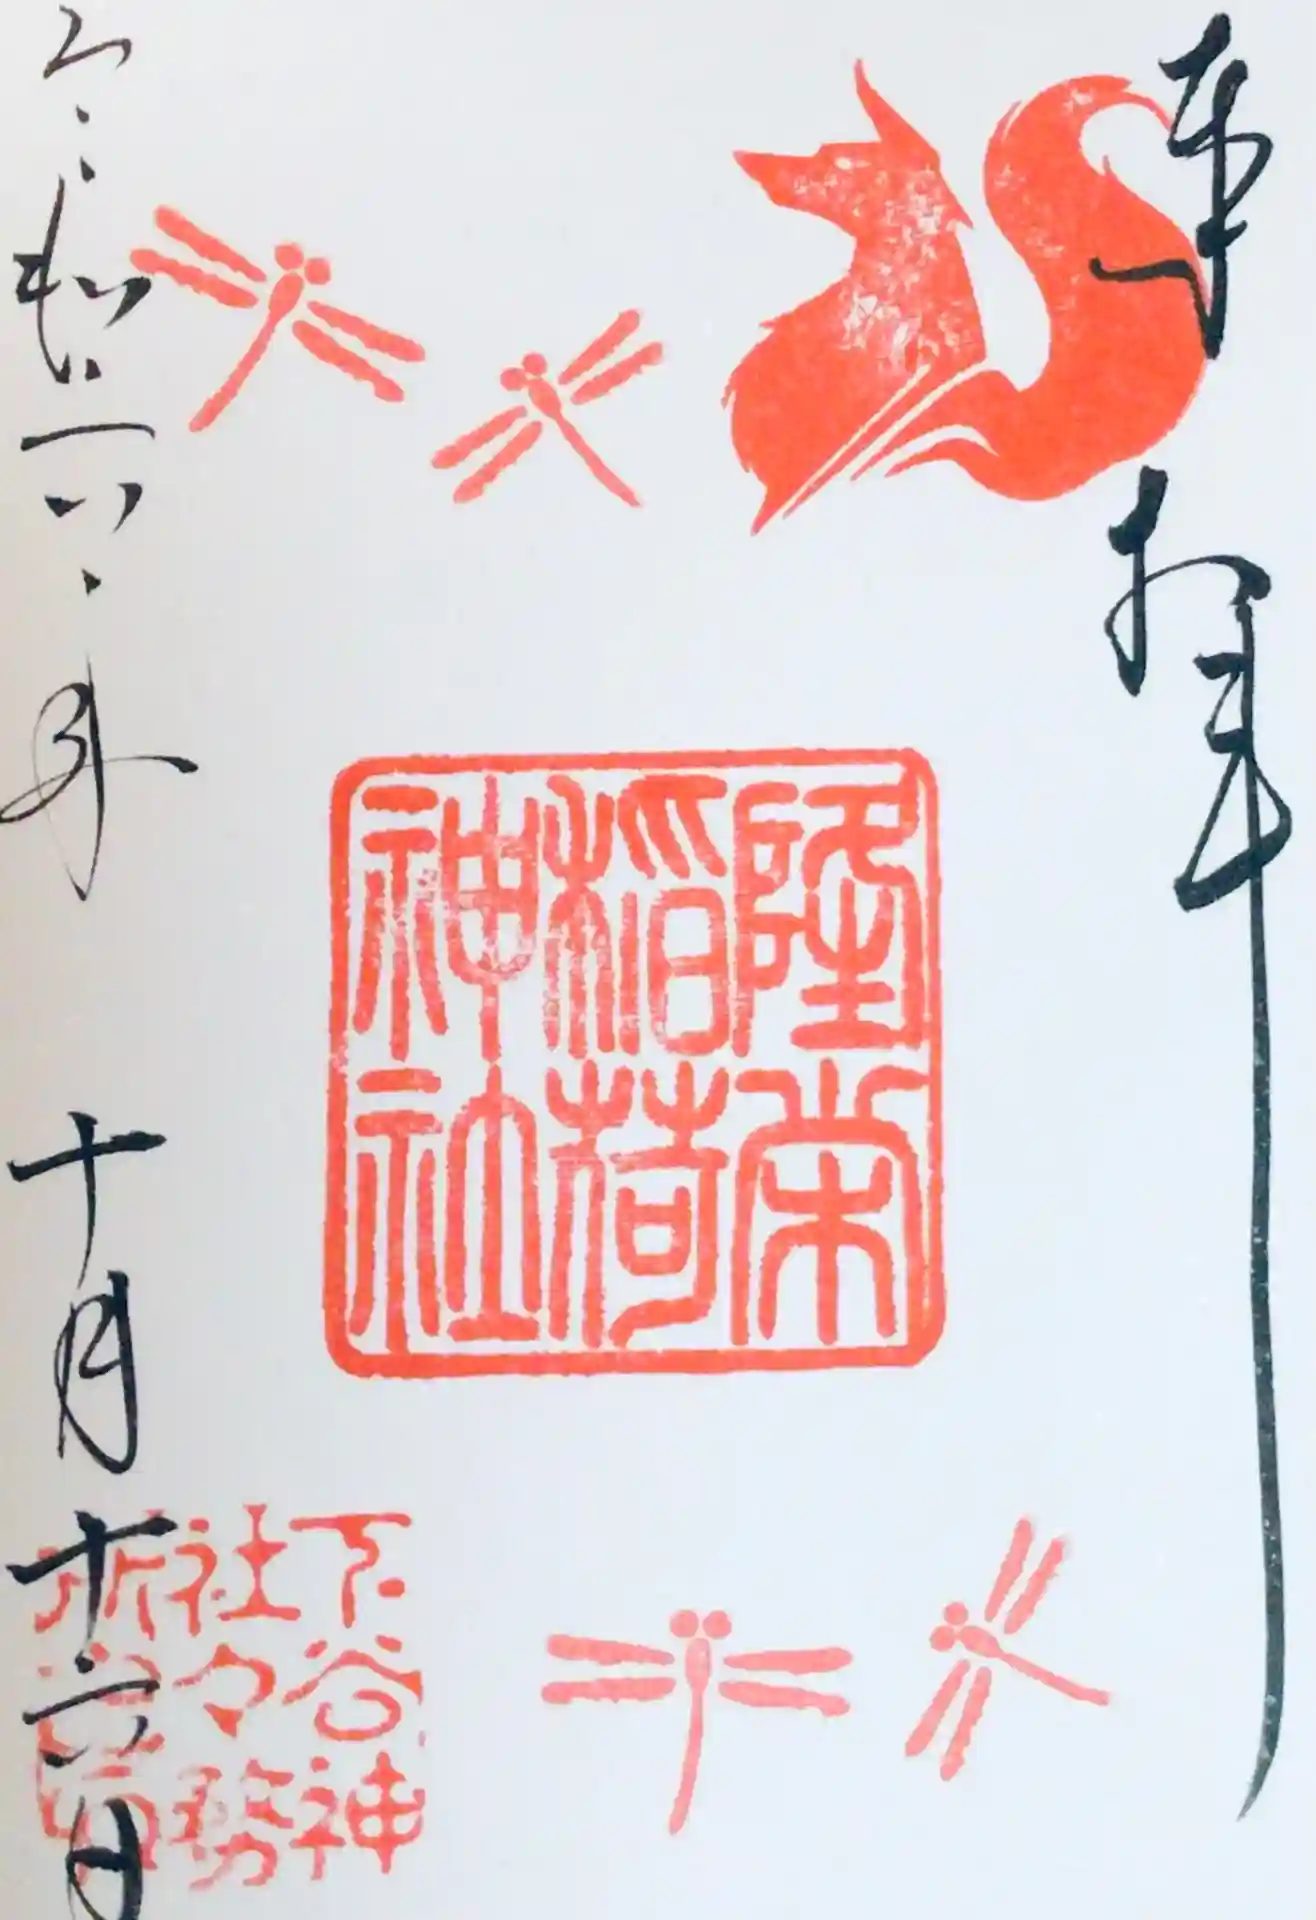 奉拝
隆栄
稲荷
神社
下谷神
社々務
所
令和六年 十月十六日